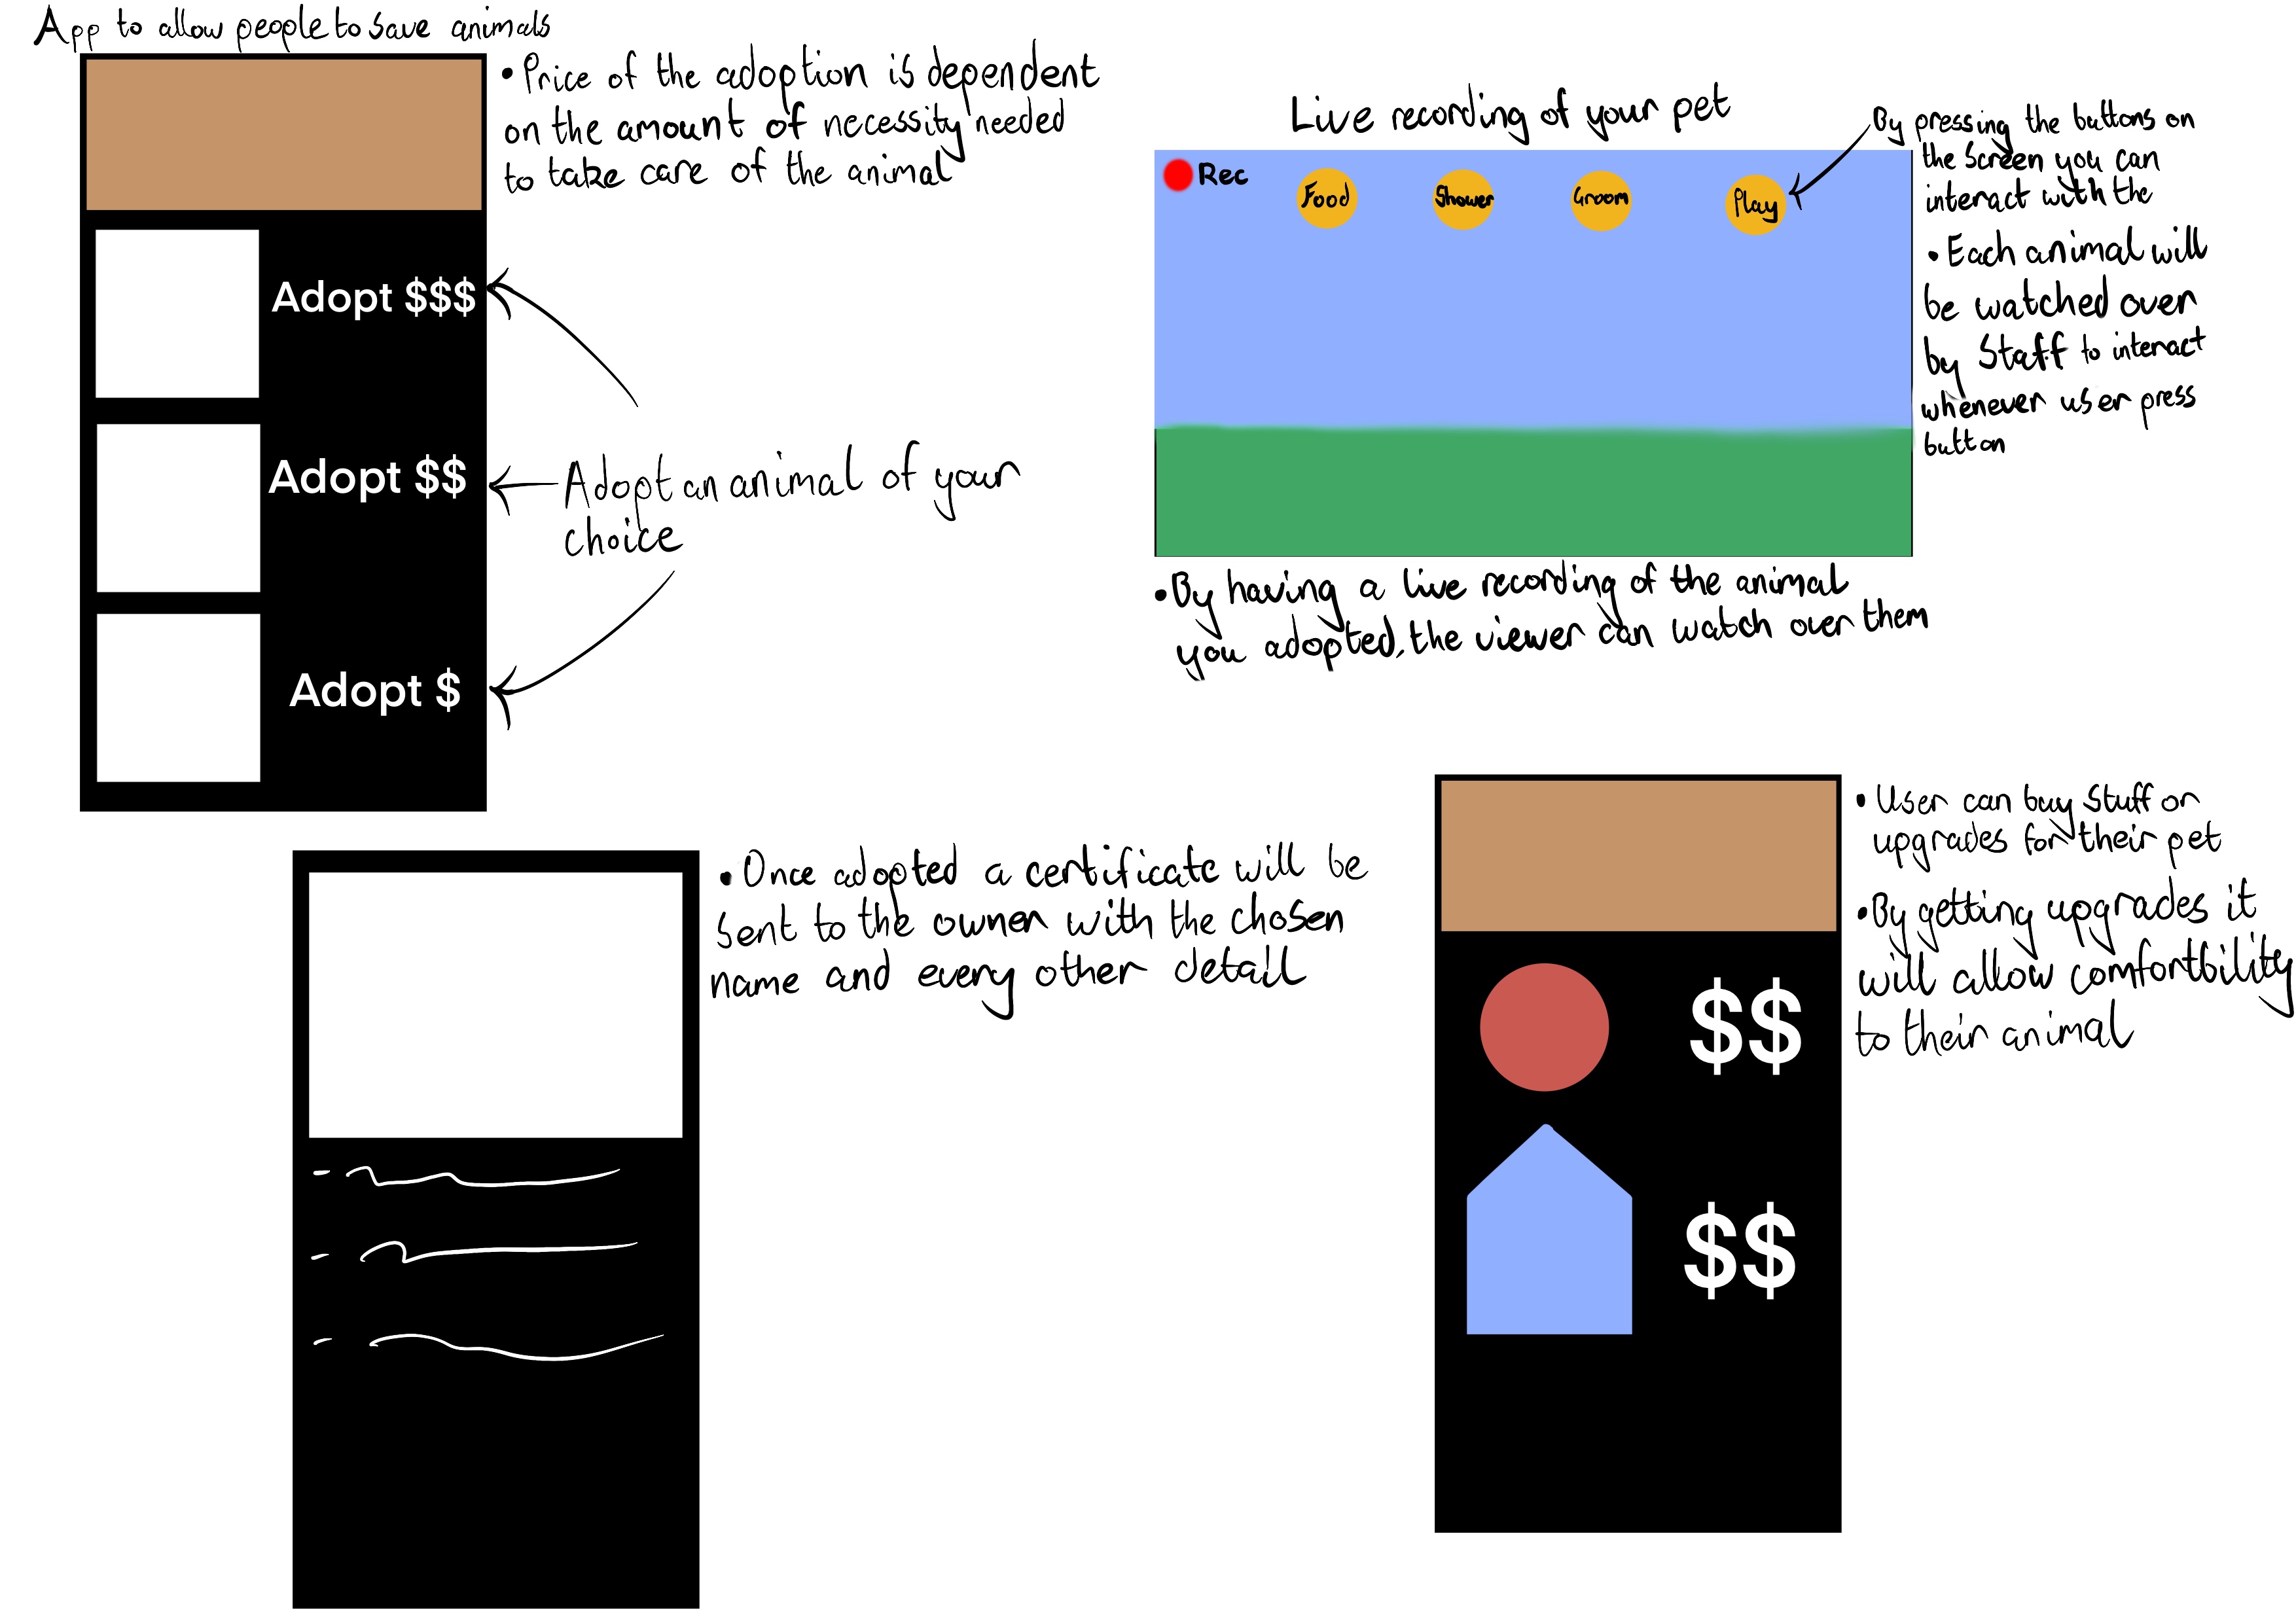 App to allow people to save animals
• Price of the adoption is dependent
on the amount of necessity needed
to take care of the animal
Adopt $$$
Adopt $$
Adopt $
Adopt an animal of your
choice
Live recording of your pet
Rec
Food
Shower
Groom
Play
By pressing the buttons on
the screen you can
interact with the
• Each animal will
be watched over
by Staff to interact
whenever user press
button
• By having a live recording of the animal
you adopted, the viewer can watch over them
• Once adopted a certificate will be
sent to the owner with the chosen
name and every other detail
• User can buy stuff or
upgrades for their pet
• By getting upgrades it
will allow comfortbility
to their animal
$$
$$